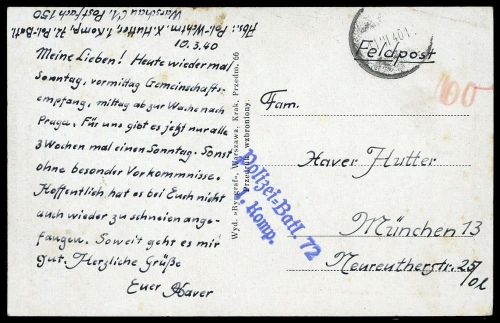 Abs.: Pol-Wchtm. X. Hutter, 1. Komp., 72. Pol-Batl.
Warschau C1, Postfach 150
10.3.40
Meine Lieben! Heute wiedermal
Sonntag, vormittag Gemeinschafts-
empfang, mittag ab zur Wache nach
Praga. Für uns gibt es jetzt nur alle
3 Wochen mal einen Sonntag. Sonst
ohne besonder Vorkommnisse.
Hoffentlich hat es bei Euch nicht
auch wieder zu schneien ange-
fangen. Soweit geht es mir
gut. Herzliche Grüße
Euer Xaver
Wyd. »Ryngraf«, Warszawa, Krak. Przedm. 66
Przedruk wzbroniony.
Polizei-Batl. 72
1. Komp.
Feldpost
100
Fam.
Xaver Hutter
München 13
Neureutherstr. 25/